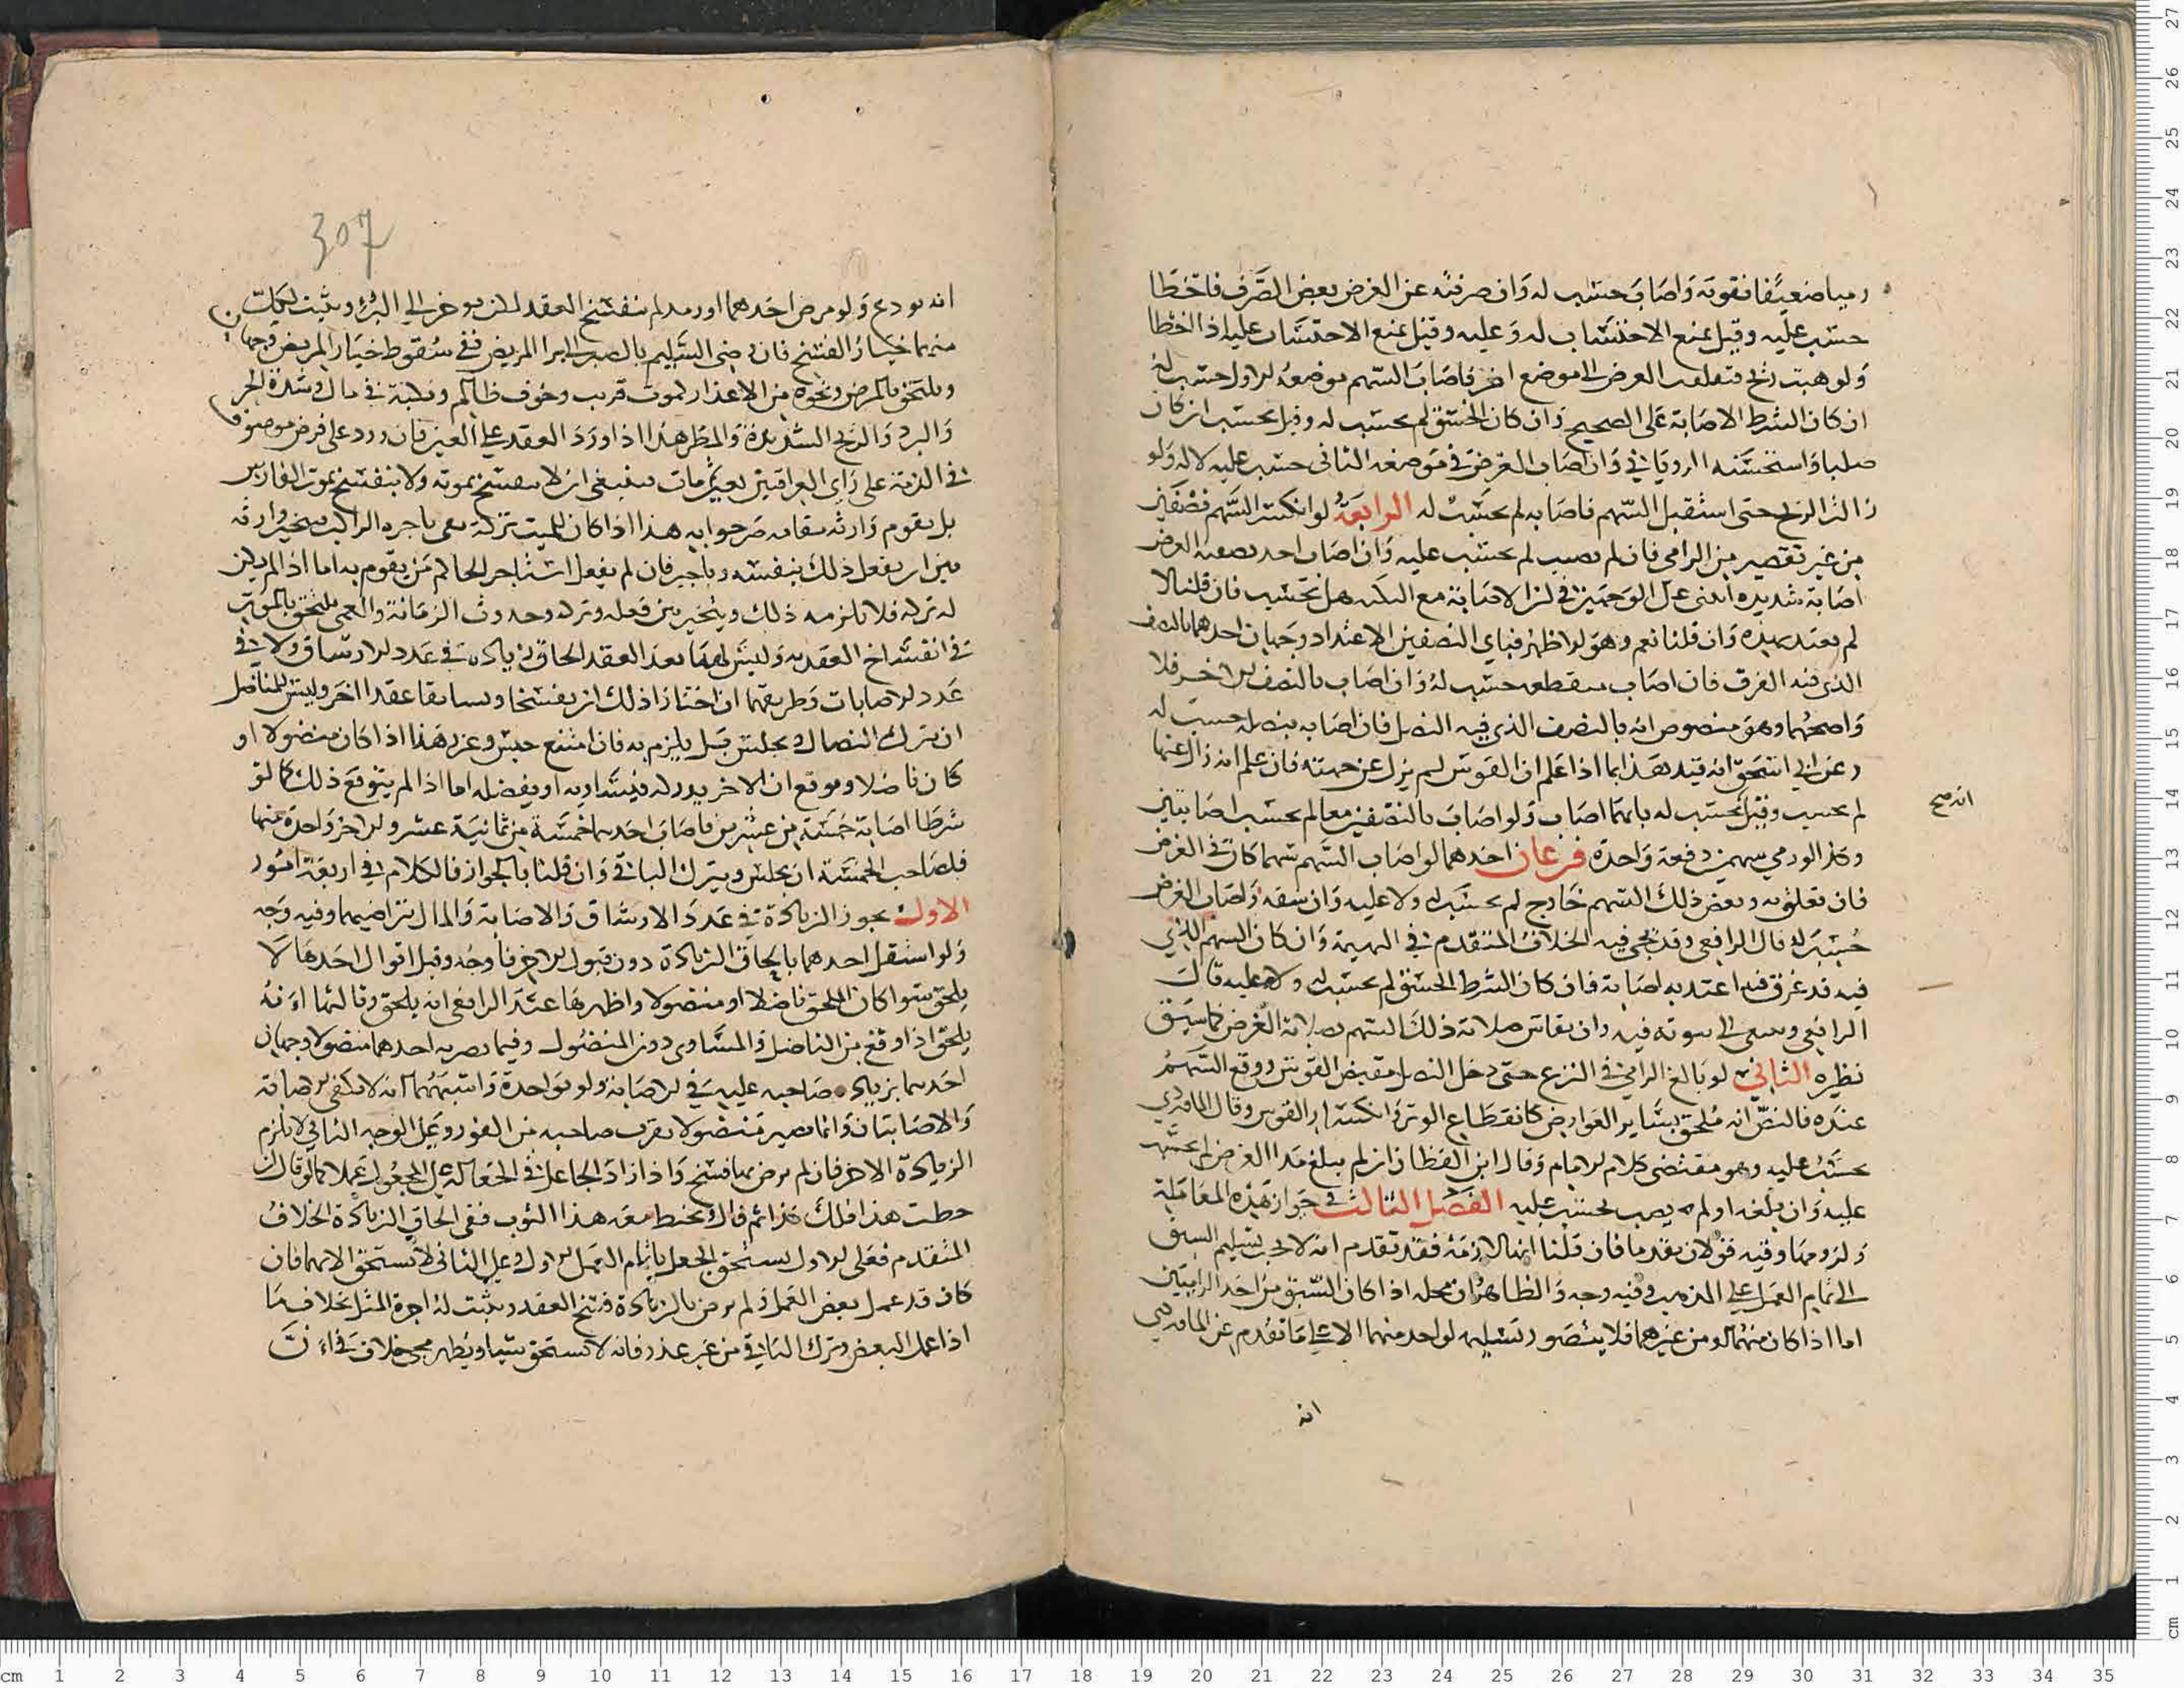 رميا ضعيفا فقوته واصاب حسب له وان صرفته عن الغرض بعض الصرف فاخطا
حسب عليه وقيل يمنع الاحتساب له وعليه وقيل يمنع الاحتساب عليه اذا اخطا
ولو هبت ريح فنقلت الغرض الى موضع اخر فاصاب السهم موضعه الاول حسب له
ان كان الشرط الاصابة على الصحيح وان كان الخسق لم يحسب له وقيل يحسب ان كان
صلبا واستحسنه الروياني وان اصاب الغرض في موضعه الثاني حسب عليه لا له ولو
ازالت الريح حتى استقبل السهم فاصابه لم يحسب له الرابعة لو انكسر السهم نصفين
من غير تقصير من الرامي فان لم يصب لم يحسب عليه وان اصاب احد نصفيه الغرض
اصابة شديدة ابتنى على الوجهين في ان الاصابة مع النكبة هل تحتسب فان قلنا لا
لم يعتد بهذه وان قلنا نعم وهو الاظهر فباي النصفين الاعتداد وجهان احدهما بالنصف
الذي فيه الفوق فان اصاب بمقطعه حسب له وان اصاب بالنصف الاخر فلا
واصحهما وهو منصوص انه بالنصف الذي فيه النصل فان اصابه بنصله حسب له
وعن ابي اسحق انه قيد هذا بما اذا علم ان القوس لم يزل عن جهته فان علم انه زال عنها
لم يحسب وقيل يحسب له بايهما اصاب ولو اصاب بالنصفين معا لم يحسب اصابتين
وكذا لو رمي سهمين دفعة واحدة فرعان احدهما لو اصاب السهم سهما كان في الغرض
فان تعلق به وبعض ذلك السهم خارج لم يحسب له ولا عليه وان شقه واصاب الغرض
حسب له قال الرافعي وقد يجي فيه الخلاف المتقدم في البهيمة وان كان السهم الذي
فيه قد غرق فيه اعتد به اصابة فان كان الشرط الخسق لم يحسب له ولا عليه قال
الرافعي وينبغي ان ثبوته فيه وان يقاس صلابة ذلك السهم بصلابة الغرض كما سبق
نظيره الثاني لو بالغ الرامي في النزع حتى دخل النصل مقبض القوس ووقع السهم
عنده فالنص انه ملحق بساير العوارض كانقطاع الوتر وانكسار القوس وقال الماوردي
يحسب عليه وهو مقتضى كلام الامام وقال ابن القطان ان لم يبلغ مدا الغرض لم يحسب
عليه وان بلغه او لم يصب يحسب عليه الفصل الثالث في جواز هذه المعاملة
ولزومها وفيه قولان تقدما فان قلنا انها لازمة فقد تقدم انه لا يجب تسليم السبق
الى تمام العمل على المذهب وفيه وجه والظاهر ان محله اذا كان السبق من احد الراميين
اما اذا كان منهما او من غيرهما فلا يتصور تسليمه لواحد منهما الا على ما تقدم عن الماوردي
انه
انه صح
307
انه يودع ولو مرض احدهما او رمد لم ينفسخ العقد لكن يوخر الى البرؤ ويثبت لكل
منهما خيار الفسخ فان رضي السليم بالصبر الى برا المريض ففي سقوط خيار المريض وجهان
ويلتحق بالمرض ونحوه من الاعذار لموت قريب وخوف ظالم ونكبة في مال وشدة الحر
والبرد والريح الشديدة والمطر هذا اذا ورد العقد على العين فان ورد على فرض موصوف
في الذمة على راي العراقيين بعين ثم مات فينبغي ان لا ينفسخ بموته ولا ينفسخ بموت الفارس
بل يقوم وارثه مقامه صرحوا به هذا اذا كان للميت تركة تفي باجرة الراكب فيخير وارثه
بين ان يفعل ذلك بنفسه وباجير فان لم يفعل استاجر الحاكم من يقوم به اما اذا لم يكن
له تركة فلا يلزمه ذلك ويتخير بين فعله وتركه وحدوث الزمانة والعمى ملتحق بالموت
في انفساخ العقد به وليس لهما بعد العقد الحاق زيادة في عدد الارشاق ولا في
عدد الاصابات وطريقهما ان اختارا ذلك ان يفسخا ويسابقا عقدا اخر وليس للمناضل
ان يترك النضال ويجلس قبل يلزم به فان امتنع حبس وعزر هذا اذا كان منضولا او
كان ناضلا وموقع ان الاخر يدركه فيساويه او يفضله اما اذا لم يتوقع ذلك كما لو
شرطا اصابة خمسة من عشرين فاصاب احدهما خمسة من ثمانية عشر والاخر واحدة منها
فلصاحب الخمسة ان يجلس ويترك الباقي وان قلنا بالجواز فالكلام في اربعة امور
الاول يجوز الزيادة في عدد الارشاق والاصابة والمال بتراضيهما وفيه وجه
ولو استقل احدهما بالحاق الزيادة دون قبول الاخر فاوجه وقيل اقوال احدها لا
يلحق سوا كان الملحق ناضلا او منضولا واظهرها عند الرافعي انه يلحق وثالثها انه
يلحق اذا وقع من الناضل والمساوي دون المنضول وفيما يصير به احدهما منضولا وجهان
احدهما بزيادة صاحبه عليه في الاصابة ولو بواحدة واشبههما انه لا تكفي الاصابة
والاصابتان وانما يصير منضولا بقرب صاحبه من الفوز وعلى الوجه الثاني لا يلزم
الزيادة الاخر فان لم يرض بها فسخ واذا زاد الجاعل في الجعالة على المجعول له عملا كما لو قال ان
خطت هذا فلك كذا ثم قال وتخيط معه هذا الثوب ففي الحاق الزيادة الخلاف
المتقدم فعلى الاول يستحق الجعل باتمام العمل الاول وعلى الثاني لا يستحق الا بهما فان
كان قد عمل بعض العمل ولم يرض بالزيادة فسخ العقد ويثبت له اجرة المثل بخلاف ما
اذا عمل البعض وترك الباقي من غير عذر فانه لا يستحق شيا ويظهر مجي خلاف في ان